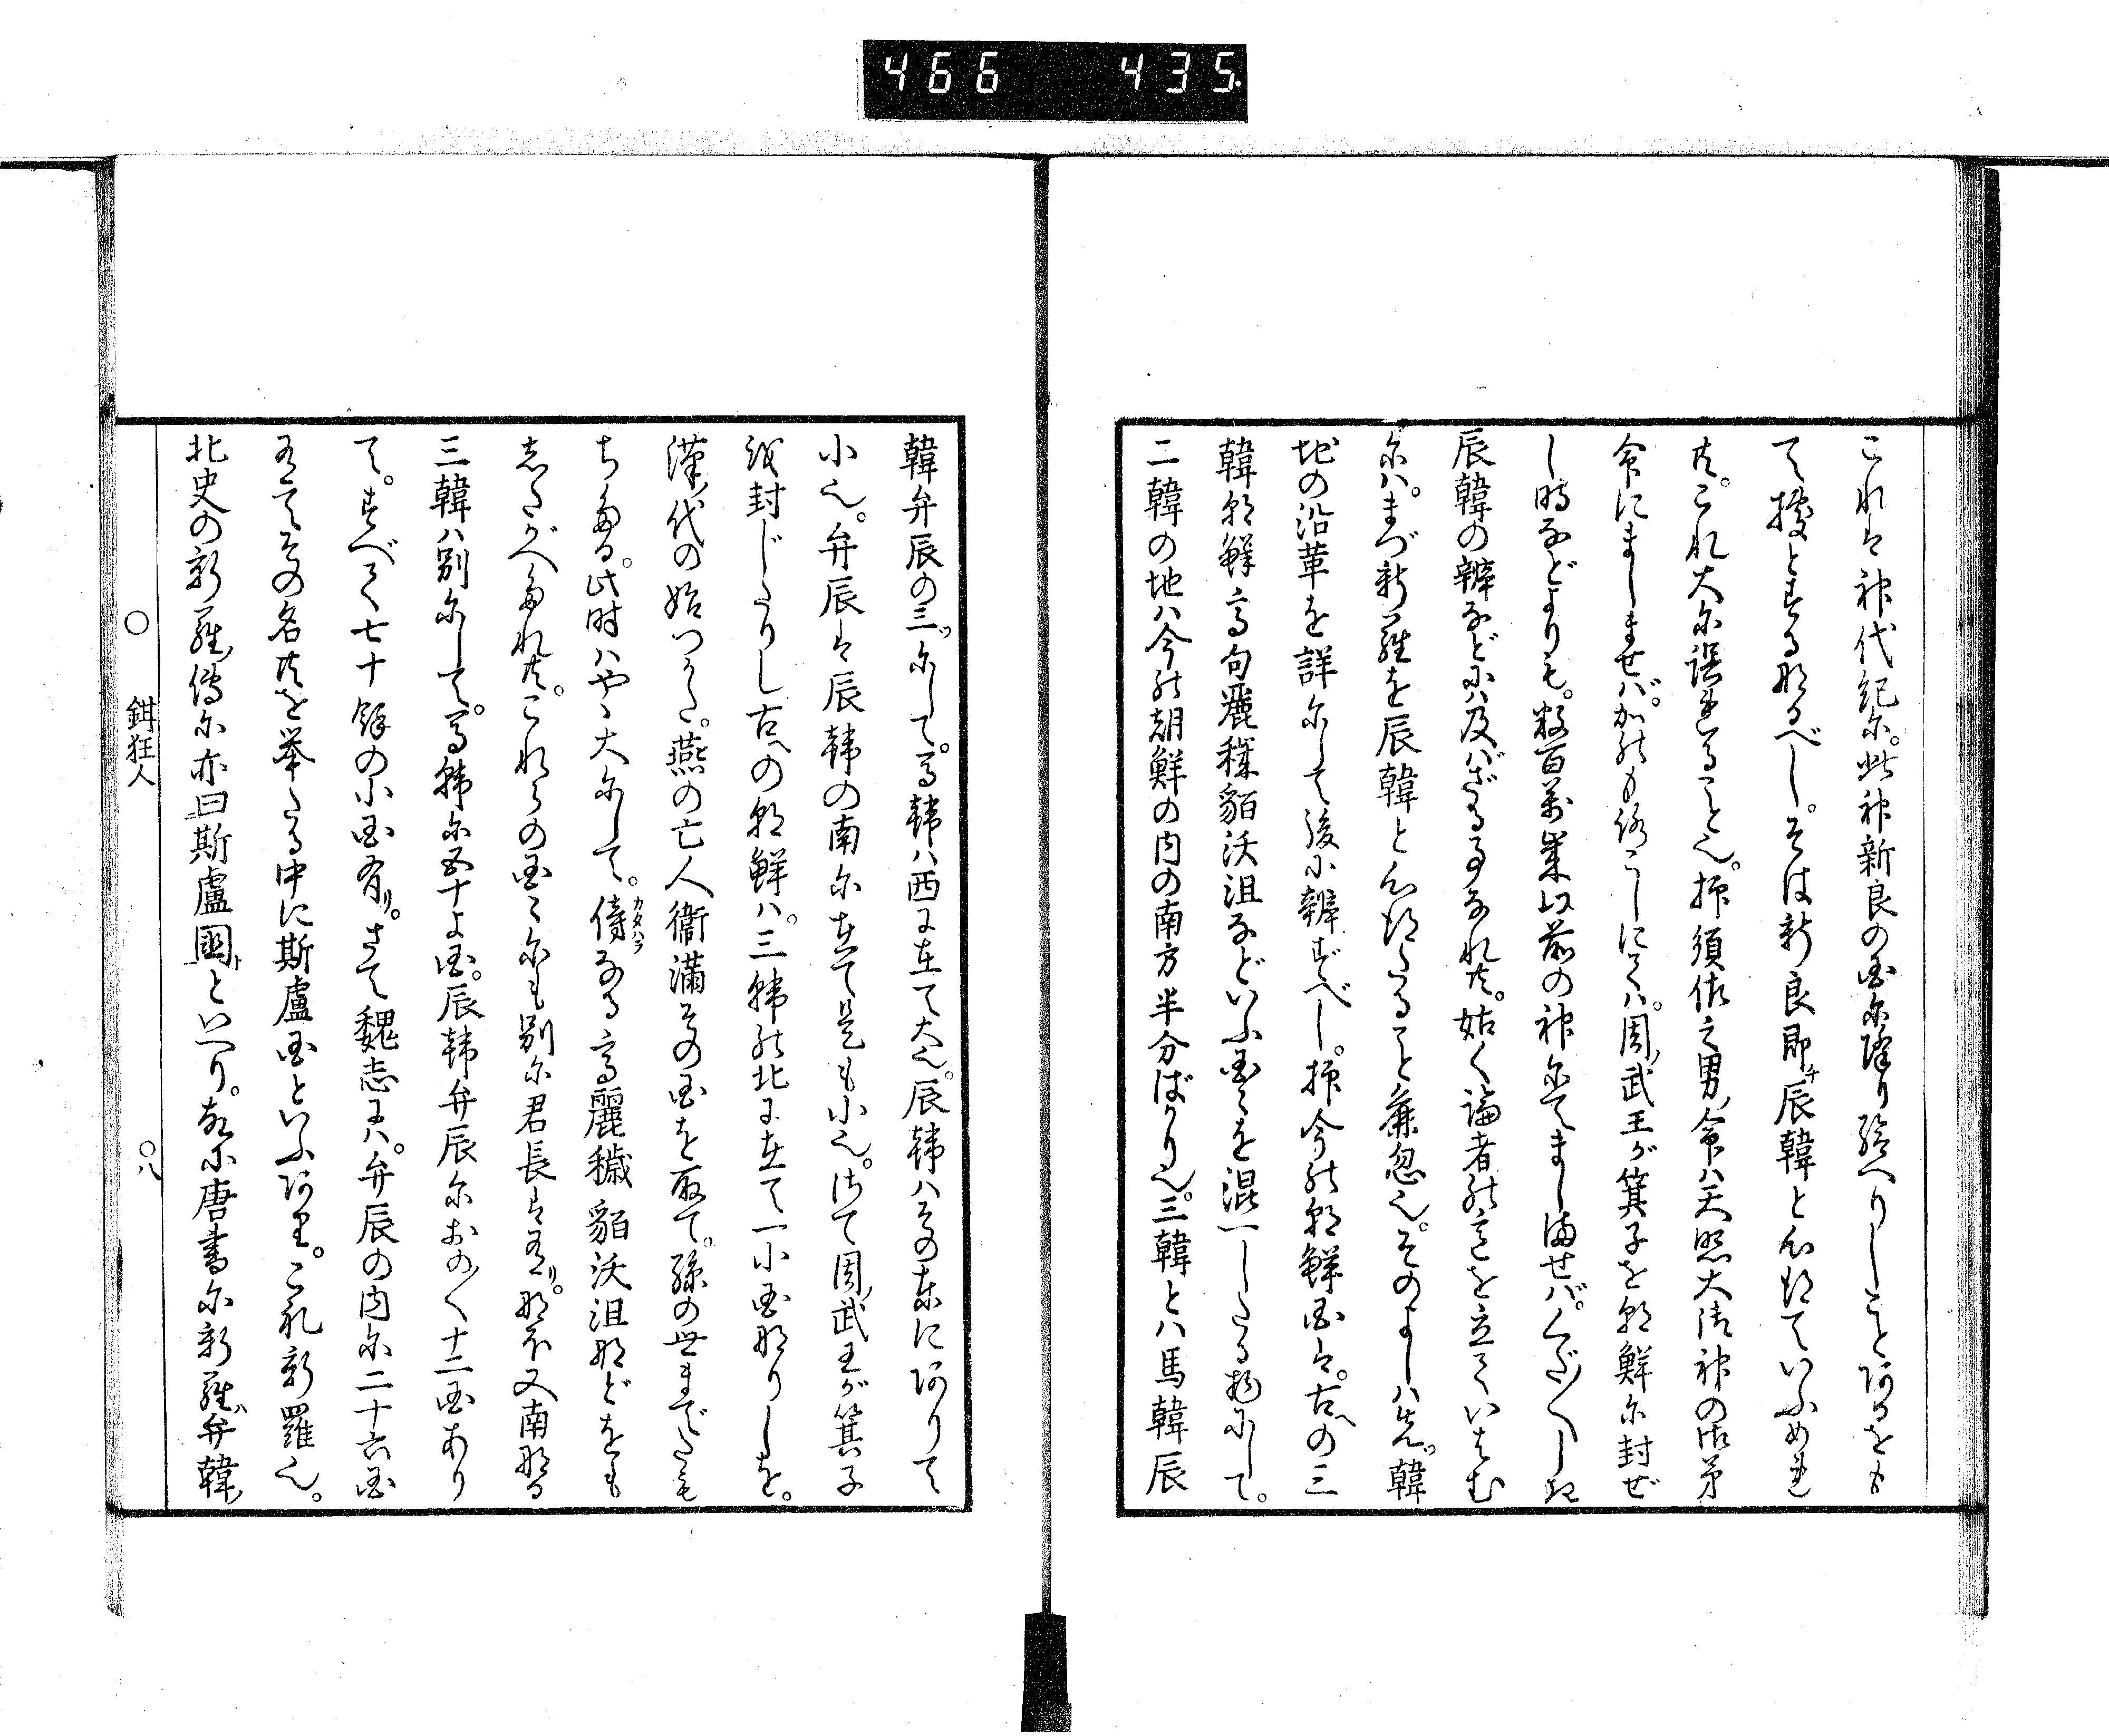 466 435.
これは神代紀尓。此神新良の国尓降り給へりしこと阿るをも
て據とせる那るべし。そは新良即チ辰韓と心得ていふめれ
共。これ大尓誤れること也。抑須佐之男ノ命ハ天照大御神の御弟
命にましませバ。かのもろこしにてハ。周ノ武王が箕子を朝鮮尓封ぜ
し時などよりも。数百万歳以前の神尓てましませバ。くだ〳〵しき
辰韓の辨などにハ及バざる事なれ共。姑く論者の言を立ていはむ
尓ハ。まづ新羅を辰韓と心得たること麁忽也。そのよしハ先ツ韓
地の沿革を詳尓して後に辨ずべし。抑今の朝鮮国は。古ヘの三
韓朝鮮高句麗穢貊沃沮などいふ国々を混一したる物にして。
二韓の地ハ今の朝鮮の内の南方半分ばかり也。三韓とハ馬韓辰
韓弁辰の三ツ尓して。馬韓ハ西に在て大也。辰韓ハその東に阿りて
小也。弁辰は辰韓の南尓在て是も小也。さて周ノ武王が箕子
を封じたりし古ヘの朝鮮ハ。三韓の北に在て一小国那りしを。
漢ノ代の始つかた。燕の亡人衞滿その国を取て。孫の世までたも
ち多る。此時ハやゝ大尓して。傍カタハラなる高麗穢貊沃沮那どをも
志たがへ多れ共。これらの国々尓も別尓君長は有リ。那ほ又南那る
三韓ハ別尓して。馬韓尓五十よ国。辰韓弁辰尓おの〳〵十二国あり
て。すべて七十餘の小国有リ。さて魏志には。弁辰の内尓二十六国
有てその名共を挙たる中に斯盧国といふ阿里。これ新羅也。
北史の新羅ノ傳尓亦曰斯盧國トといへり。故に唐書尓新羅ハ弁韓ノ
○ 鉗狂人 ○八